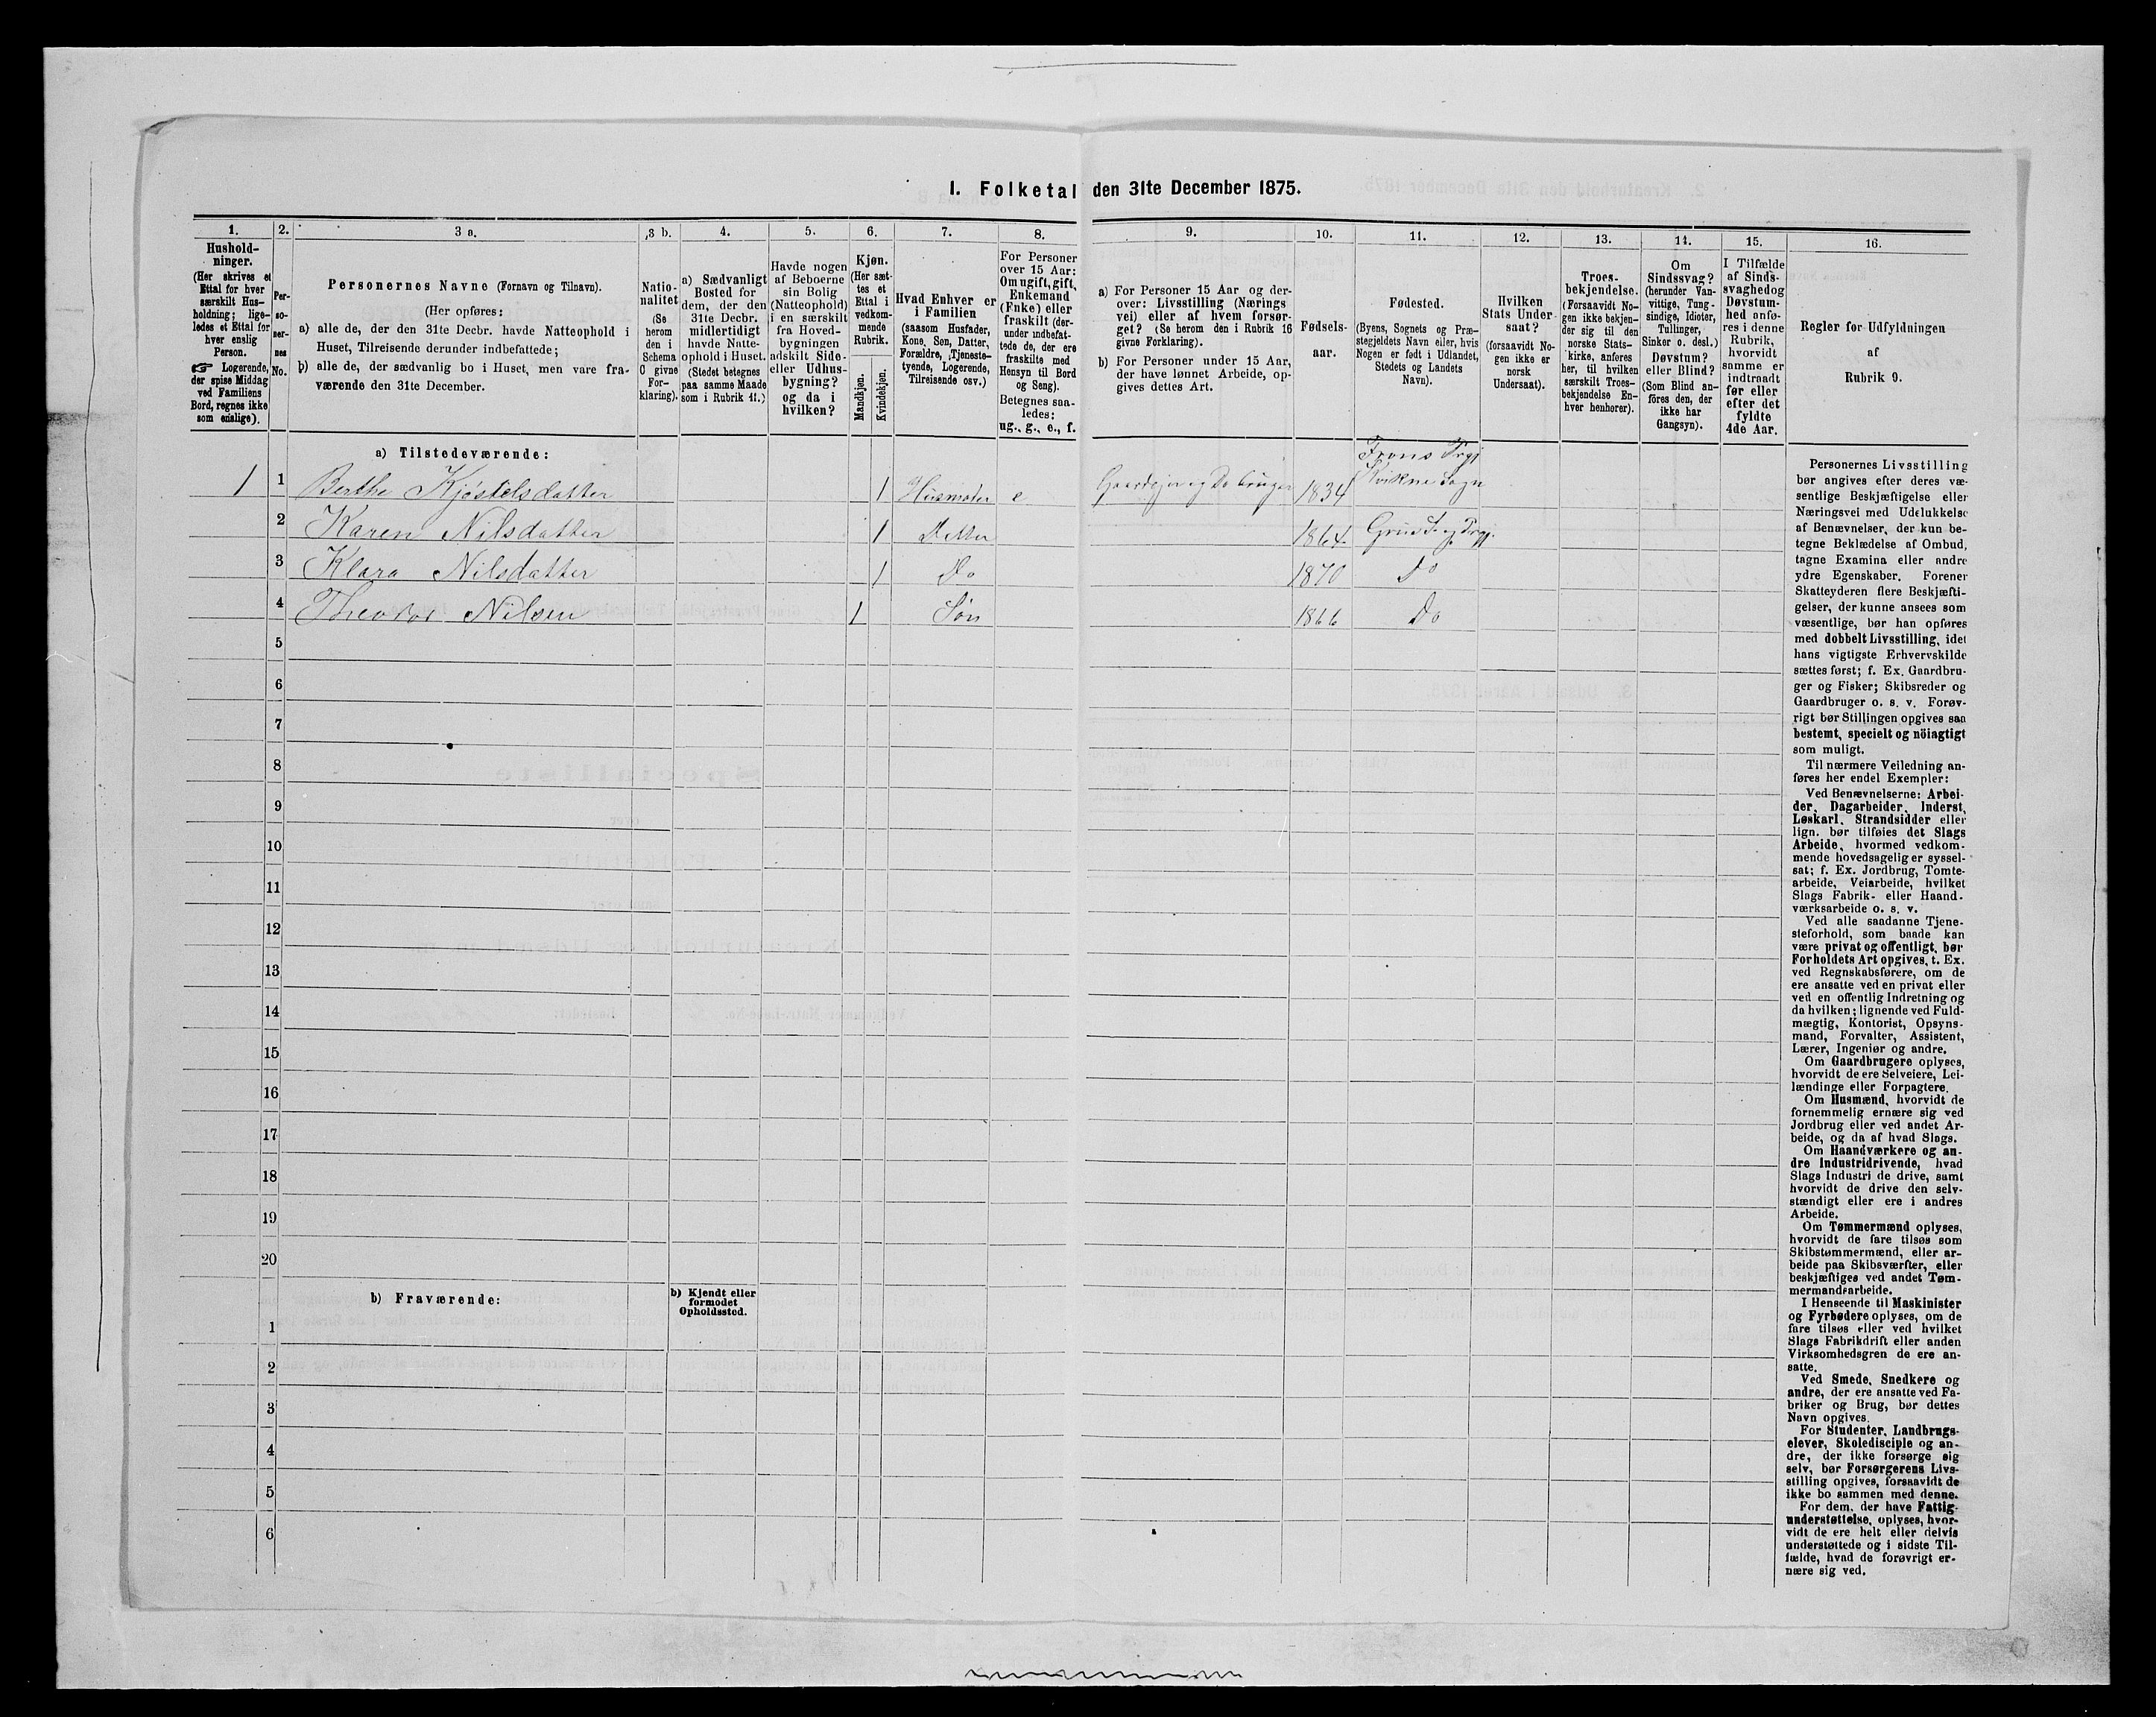 I. Folketal den 31te December 1875.
1.
Hushold-
ninger.
(Her skrives et
Ettal for hver
særskilt Hus-
holdning; lige-
ledes et Ettal for
hver enslig
Person.
☞ Logerende,
der spise Middag
ved Familiens
Bord, regnes ikke
som enslige).
2.
Per-
so-
ner-
nes
No.
3 a.
Personernes Navne (Fornavn og Tilnavn).
(Her opføres:
a) alle de, der den 31te Decbr. havde Natteophold i
Huset, Tilreisende derunder indbefattede;
b) alle de, der sædvanlig bo i Huset, men vare fra-
værende den 31te December.
3 b.
Natio-
nalitet
(Se
herom
den i
Schema
C givne
For-
klaring).
4.
a) Sædvanligt
Bosted for
dem, der den
31te Decbr.
midlertidigt
havde Natte-
ophold i Huset.
(Stedet betegnes
paa samme Maade
som i Rubrik 11.)
5.
Havde nogen
af Beboerne
sin Bolig
(Natteophold)
i en særskilt
fra Hoved-
bygningen
adskilt Side-
eller Udhus-
bygning?
og da i
hvilken?
6.
Kjøn.
(Her sæt-
tes et
Ettal i
vedkom-
mende
Rubrik.
Mandkjøn.
Kvindekjøn.
7.
Hvad Enhver er
i Familien
(saasom Husfader,
Kone, Søn, Datter,
Forældre, Tjeneste-
tyende, Logerende,
Tilreisende osv.)
8.
For Personer
over 15 Aar:
Om ugift, gift,
Enkemand
(Enke) eller
fraskilt (der-
under indbefat-
tede de, der ere
fraskilte med
Hensyn til Bord
og Seng).
Betegnes saa-
ledes:
ug., g., e., f.
9.
a) For Personer 15 Aar og der-
over: Livsstilling (Nærings
vei) eller af hvem forsør-
get? (Se herom den i Rubrik 16
givne Forklaring).
b) For Personer under 15 Aar,
der have lønnet Arbeide, op-
gives dettes Art.
10.
Fødsels-
aar.
11.
Fødested.
(Byens, Sognets og Præ-
stegjeldets Navn eller, hvis
Nogen er født i Udlandet,
Stedets og Landets
Navn).
12.
Hvilken
Stats Under-
saat?
(forsaavidt No-
gen ikke er
norsk
Undersaat).
13.
Troes-
bekjendelse.
(Forsaavidt No-
gen ikke bekjen-
der sig til den
norske Stats-
kirke, anføres
her, til hvilken
særskilt Troes-
bekjendelse En-
hver henhører).
14.
Om
Sindssvag?
(herunder Van-
vittige, Tung-
sindige, Idioter,
Tullinger,
Sinker o. desl.)
Døvstum?
eller Blind?
(Som Blind an-
føres den, der
ikke har
Gangsyn).
15.
I Tilfælde
af Sinds-
svaghed og
Døvstum-
hed anfø-
res i denne
Rubrik,
hvorvidt
samme er
indtraadt
før eller
efter det
fyldte
4de Aar.
16.
Regler for Udfyldningen
af
Rubrik 9.
a) Tilstedeværende:
Frons Prgj
1 1 Berthe Kjøstelsdatter 1 Husmoder e Gaardejer og Do bruger 1834 Kvikne Sogn
2 Karen Nilsdatter 1 Datter 1864 Grue S. og Prgj.
3 Klara Nilsdatter 1 Do 1870 Do
4 Theodor Nilsen 1 Søn 1866 Do
5
6
7
8
9
10
11
12
13
14
15
16
17
18
19
20
b) Fraværende:
b) Kjendt eller
formodet
Opholdssted.
1
2
3
4
5
6
Personernes Livsstilling
bør angives efter deres væ-
sentlige Beskjæftigelse eller
Næringsvei med Udelukkelse
af Benævnelser, der kun be-
tegne Beklædelse af Ombud,
tagne Examina eller andre
ydre Egenskaber. Forener
Skatteyderen flere Beskjæfti-
gelser, der kunne ansees som
væsentlige, bør han opføres
med dobbelt Livsstilling, idet
hans vigtigste Erhvervskilde
sættes først; f. Ex. Gaardbru-
ger og Fisker; Skibsreder og
Gaardbruger o. s. v. Forøv-
rigt bør Stillingen opgives saa
bestemt, specielt og nöiagtigt
som muligt.
Til nærmere Veiledning an-
føres her endel Exempler:
Ved Benævnelserne: Arbei-
der, Dagarbeider, Inderst,
Løskarl, Strandsidder eller
lign. bør tilføies det Slags
Arbeide, hvormed vedkom-
mende hovedsagelig er syssel-
sat; f. Ex. Jordbrug, Tomte-
arbeide, Veiarbeide, hvilket
Slags Fabrik- eller Haand-
værksarbeide o. s. v.
Ved alle saadanne Tjene-
steforhold, som baade kan
være privat og offentligt, bør
Forholdets Art opgives, t. Ex.
ved Regnskabsførere, om de
ere ansatte ved en privat eller
ved en offentlig Indretning og
da hvilken; lignende ved Fuld-
mægtig, Kontorist, Opsyns-
mand, Forvalter, Assistent,
Lærer, Ingeniør og andre.
Om Gaardbrugere oplyses,
hvorvidt de ere Selveiere, Lei-
lændinge eller Forpagtere.
Om Husmænd, hvorvidt de
fornemmelig ernære sig ved
Jordbrug eller ved andet Ar-
beide, og da af hvad Slags.
Om Haandværkere og an-
dre Industridrivende, hvad
Slags Industri de drive, samt
hvorvidt de drive den selv-
stændigt eller ere i andres
Arbeide.
Om Tømmermænd oplyses,
hvorvidt de fare tilsøs som
Skibstømmermænd, eller ar-
beide paa Skibsværfter, eller
beskjæftiges ved andet Tøm-
mermandsarbeide.
I Henseende til Maskinister
og Fyrbødere oplyses, om de
fare tilsøs eller ved hvilket
Slags Fabrikdrift eller anden
Virksomhedsgren de ere an-
satte.
Ved Smede, Snedkere og
andre, der ere ansatte ved Fa-
briker og Brug, bør dettes
Navn opgives.
For Studenter, Landbrugs-
elever, Skoledisciple og an-
dre, der ikke forsørge sig
selv, bør Forsørgerens Livs-
stilling opgives, forsaavidt de
ikke bo sammen med denne.
For dem, der have Fattig-
understøttelse, oplyses, hvor-
vidt de ere helt eller delvis
understøttede og i sidste Til-
fælde, hvad de forøvrigt er-
nære sig ved.